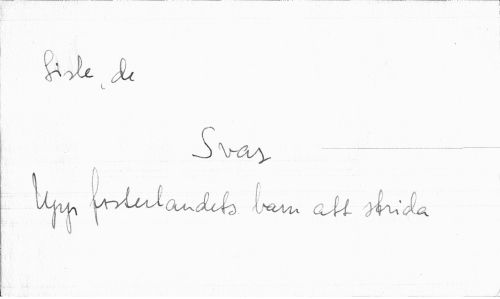 Lisle, de
Svar
Upp fosterlandets barn att strida